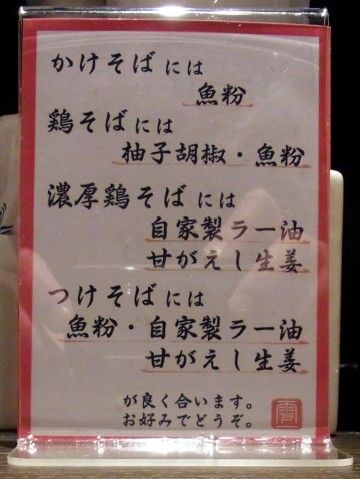 かけそばには
魚粉
鶏そばには
柚子胡椒・魚粉
濃厚鶏そばには
自家製ラー油
甘がえし生姜
つけそばには
魚粉・自家製ラー油
甘がえし生姜
が良く合います。
お好みでどうぞ。